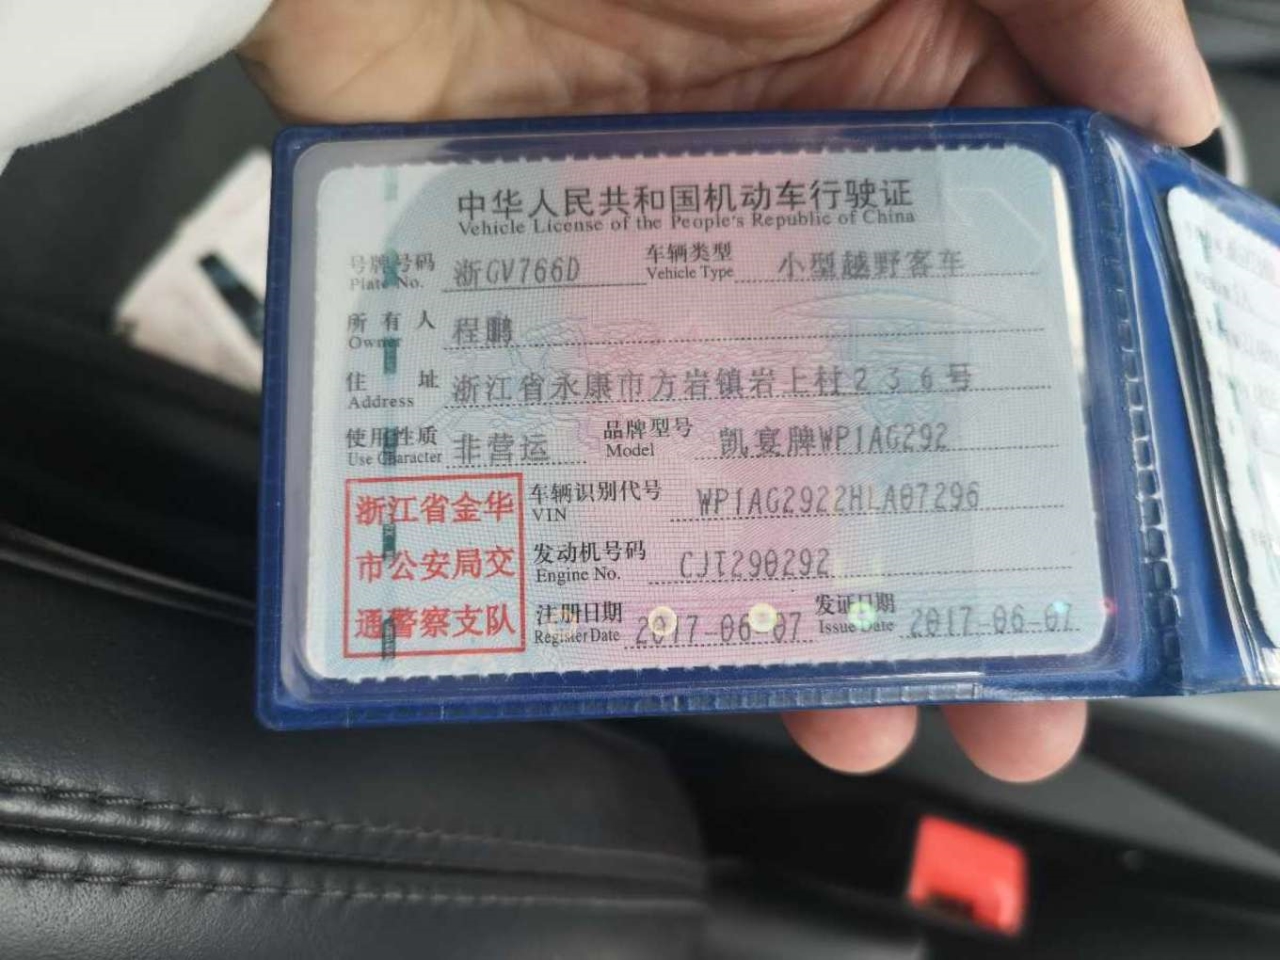 中华人民共和国机动车行驶证
Vehicle License of the People's Republic of China
号牌号码 浙GV766D 车辆类型 小型越野客车
Plate No. Vehicle Type
所有人 程鹏
Owner
住址 浙江省永康市方岩镇岩上村236号
Address
使用性质 非营运 品牌型号 凯宴牌WP1AG292
Use Character Model
浙江省金华
市公安局交
通警察支队
车辆识别代号 WP1AG2922HLA07296
VIN
发动机号码 CJT290292
Engine No.
注册日期 2017-06-07 发证日期 2017-06-07
Register Date Issue Date